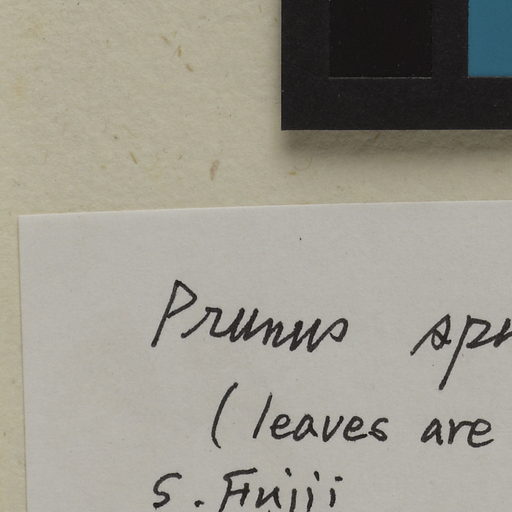 Prunus sp
(leaves are
S. Fujii